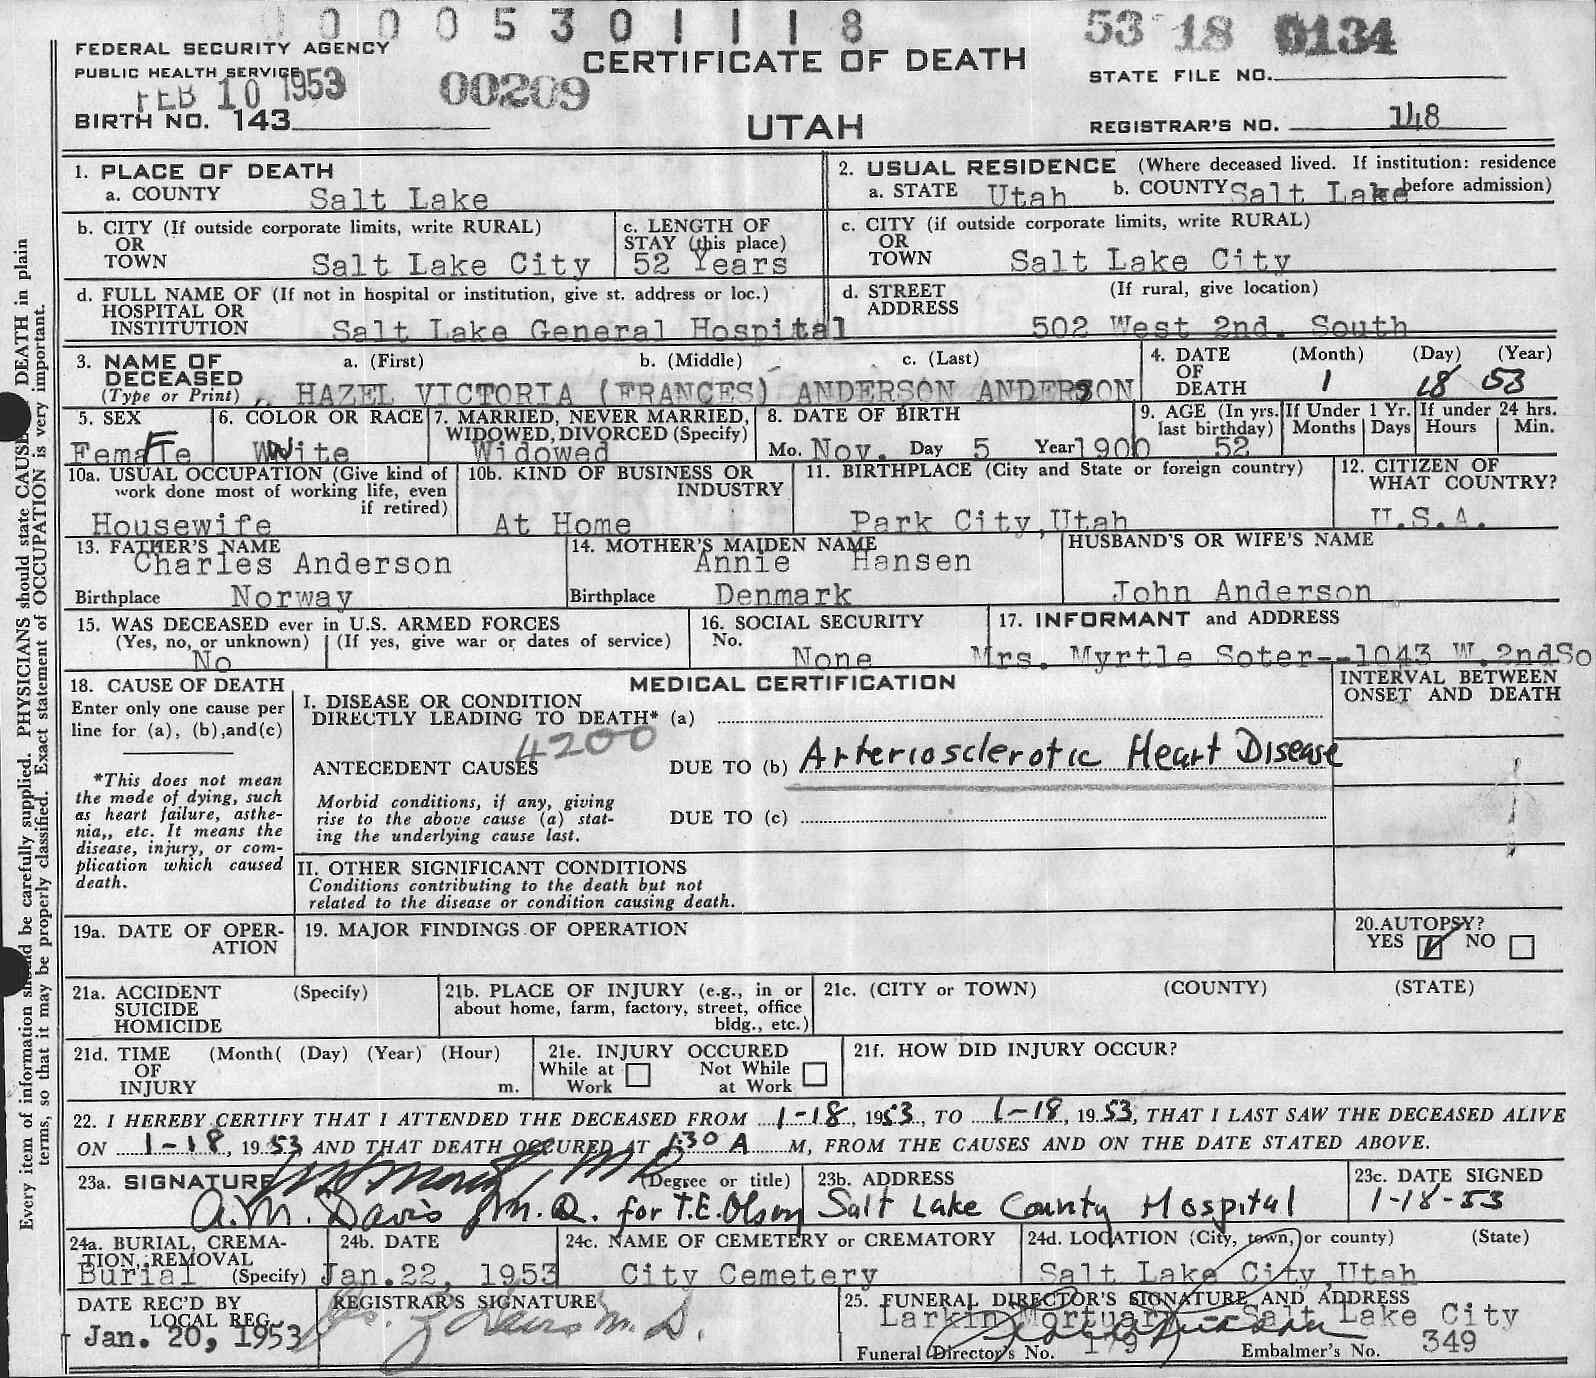 0 0 0 0 5 3 0 1 1 1 8
53 18 0134
FEDERAL SECURITY AGENCY
PUBLIC HEALTH SERVICE
FEB 10 1953
00209
CERTIFICATE OF DEATH
STATE FILE NO.
BIRTH NO. 143
UTAH
REGISTRAR'S NO. 148
1. PLACE OF DEATH
a. COUNTY Salt Lake
2. USUAL RESIDENCE (Where deceased lived. If institution: residence before admission)
a. STATE Utah b. COUNTY Salt Lake
b. CITY (If outside corporate limits, write RURAL)
OR
TOWN Salt Lake City
c. LENGTH OF
STAY (this place)
52 Years
c. CITY (if outside corporate limits, write RURAL)
OR
TOWN Salt Lake City
d. FULL NAME OF (If not in hospital or institution, give st. address or loc.)
HOSPITAL OR
INSTITUTION Salt Lake General Hospital
d. STREET (If rural, give location)
ADDRESS 502 West 2nd. South
3. NAME OF
DECEASED
(Type or Print)
a. (First) b. (Middle) c. (Last)
HAZEL VICTORIA (FRANCES) ANDERSON ANDERSON
4. DATE
OF
DEATH
(Month) (Day) (Year)
1 18 53
5. SEX
Female F
6. COLOR OR RACE
White W
7. MARRIED, NEVER MARRIED,
WIDOWED, DIVORCED (Specify)
Widowed
8. DATE OF BIRTH
Mo. Nov. Day 5 Year 1900
9. AGE (In yrs.
last birthday)
52
If Under 1 Yr.
Months Days
If under 24 hrs.
Hours Min.
10a. USUAL OCCUPATION (Give kind of
work done most of working life, even
if retired)
Housewife
10b. KIND OF BUSINESS OR
INDUSTRY
At Home
11. BIRTHPLACE (City and State or foreign country)
Park City,Utah
12. CITIZEN OF
WHAT COUNTRY?
U.S.A.
13. FATHER'S NAME
Charles Anderson
Birthplace Norway
14. MOTHER'S MAIDEN NAME
Annie Hansen
Birthplace Denmark
HUSBAND'S OR WIFE'S NAME
John Anderson
15. WAS DECEASED ever in U.S. ARMED FORCES
(Yes, no, or unknown) (If yes, give war or dates of service)
No
16. SOCIAL SECURITY
No.
None
17. INFORMANT and ADDRESS
Mrs. Myrtle Soter--1043 W.2ndSo
18. CAUSE OF DEATH
Enter only one cause per
line for (a), (b),and(c)
*This does not mean
the mode of dying, such
as heart failure, asthe-
nia,, etc. It means the
disease, injury, or com-
plication which caused
death.
MEDICAL CERTIFICATION
INTERVAL BETWEEN
ONSET AND DEATH
I. DISEASE OR CONDITION
DIRECTLY LEADING TO DEATH* (a)
4200
ANTECEDENT CAUSES DUE TO (b) Arteriosclerotic Heart Disease
Morbid conditions, if any, giving
rise to the above cause (a) stat-
ing the underlying cause last.
DUE TO (c)
II. OTHER SIGNIFICANT CONDITIONS
Conditions contributing to the death but not
related to the disease or condition causing death.
19a. DATE OF OPER-
ATION
19. MAJOR FINDINGS OF OPERATION
20.AUTOPSY?
YES NO
21a. ACCIDENT (Specify)
SUICIDE
HOMICIDE
21b. PLACE OF INJURY (e.g., in or
about home, farm, factory, street, office
bldg., etc.)
21c. (CITY or TOWN) (COUNTY) (STATE)
21d. TIME (Month( (Day) (Year) (Hour)
OF
INJURY m.
21e. INJURY OCCURED
While at Work Not While at Work
21f. HOW DID INJURY OCCUR?
22. I HEREBY CERTIFY THAT I ATTENDED THE DECEASED FROM 1-18, 1953, TO 1-18, 1953, THAT I LAST SAW THE DECEASED ALIVE
ON 1-18, 1953 AND THAT DEATH OCCURED AT 1:30 A M, FROM THE CAUSES AND ON THE DATE STATED ABOVE.
23a. SIGNATURE M.D. (Degree or title)
A.M. Davis M.D. for T.E. Olson
23b. ADDRESS
Salt Lake County Hospital
23c. DATE SIGNED
1-18-53
24a. BURIAL, CREMA-
TION, REMOVAL
Burial (Specify)
24b. DATE
Jan.22, 1953
24c. NAME OF CEMETERY or CREMATORY
City Cemetery
24d. LOCATION (City, town, or county) (State)
Salt Lake City,Utah
DATE REC'D BY
LOCAL REG.
Jan. 20, 1953
REGISTRAR'S SIGNATURE
M.D.
25. FUNERAL DIRECTOR'S SIGNATURE AND ADDRESS
Larkin Mortuary--Salt Lake City
Funeral Director's No. 179 Embalmer's No. 349
Every item of information should be carefully supplied. PHYSICIANS should state CAUSE DEATH in plain
terms, so that it may be properly classified. Exact statement of OCCUPATION is very important.